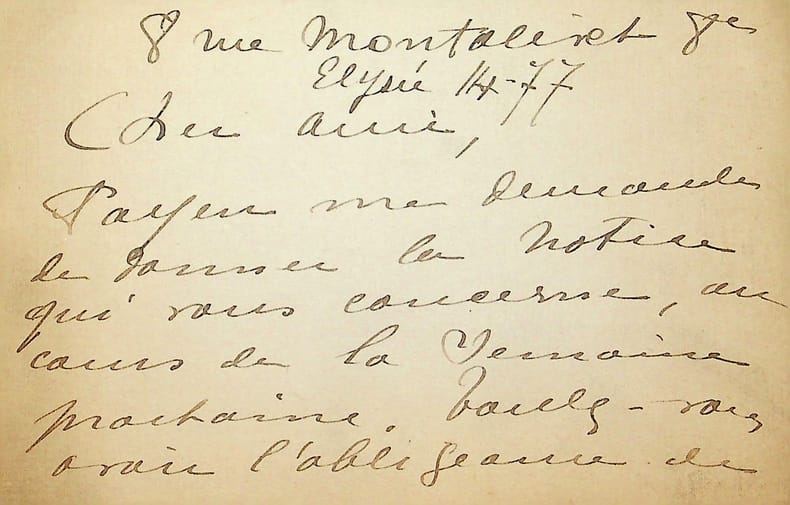 8 rue Montalivet 8e
Elysée 14-77
Cher ami,
Payen me demande
de donner la notice
qui vous concerne, au
cours de la semaine
prochaine. Voulez-vous
avoir l'obligeance de